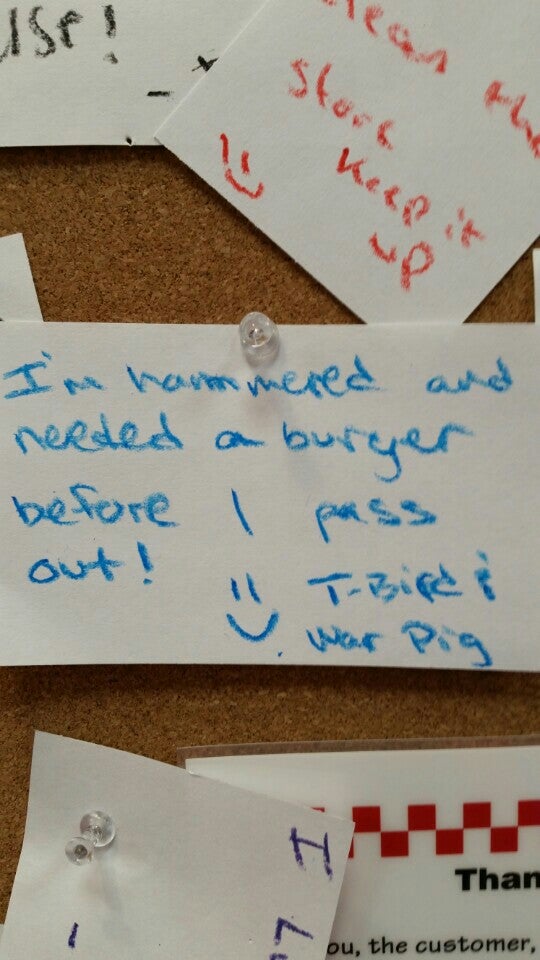 clean the
store
keep it
up
I'm hammered and
needed a burger
before I pass
out!
T-Bird &
War Pig
I
Than
ou, the customer,